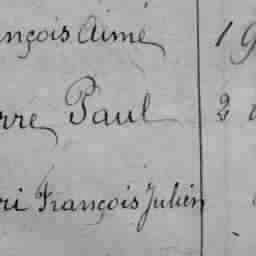 nçois Aimé 19
rre Paul 2
ri François Julien